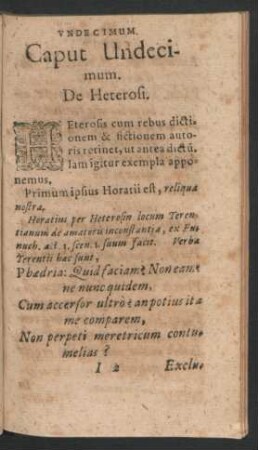 VNDECIMUM.
Caput Undeci-
mum.
De Heterosi.
HEterosis cum rebus dicti-
onem & fictionem auto-
ris retinet, ut antea dictũ.
Iam igitur exempla appo-
nemus,
Primum ipsius Horatii est, reliqua
nostra,
Horatius per Heterosin locum Teren-
tianum de amatoris inconstantia, ex Eu-
nuch. act. 1. scen. 1. suum facit. Verba
Terentii hæc sunt,
Phædria: Quid faciam? Non eam?
ne nunc quidem,
Cum accersor ultrò? an potius ita
me comparem,
Non perpeti meretricum contu-
melias?
I 2 Exclu-